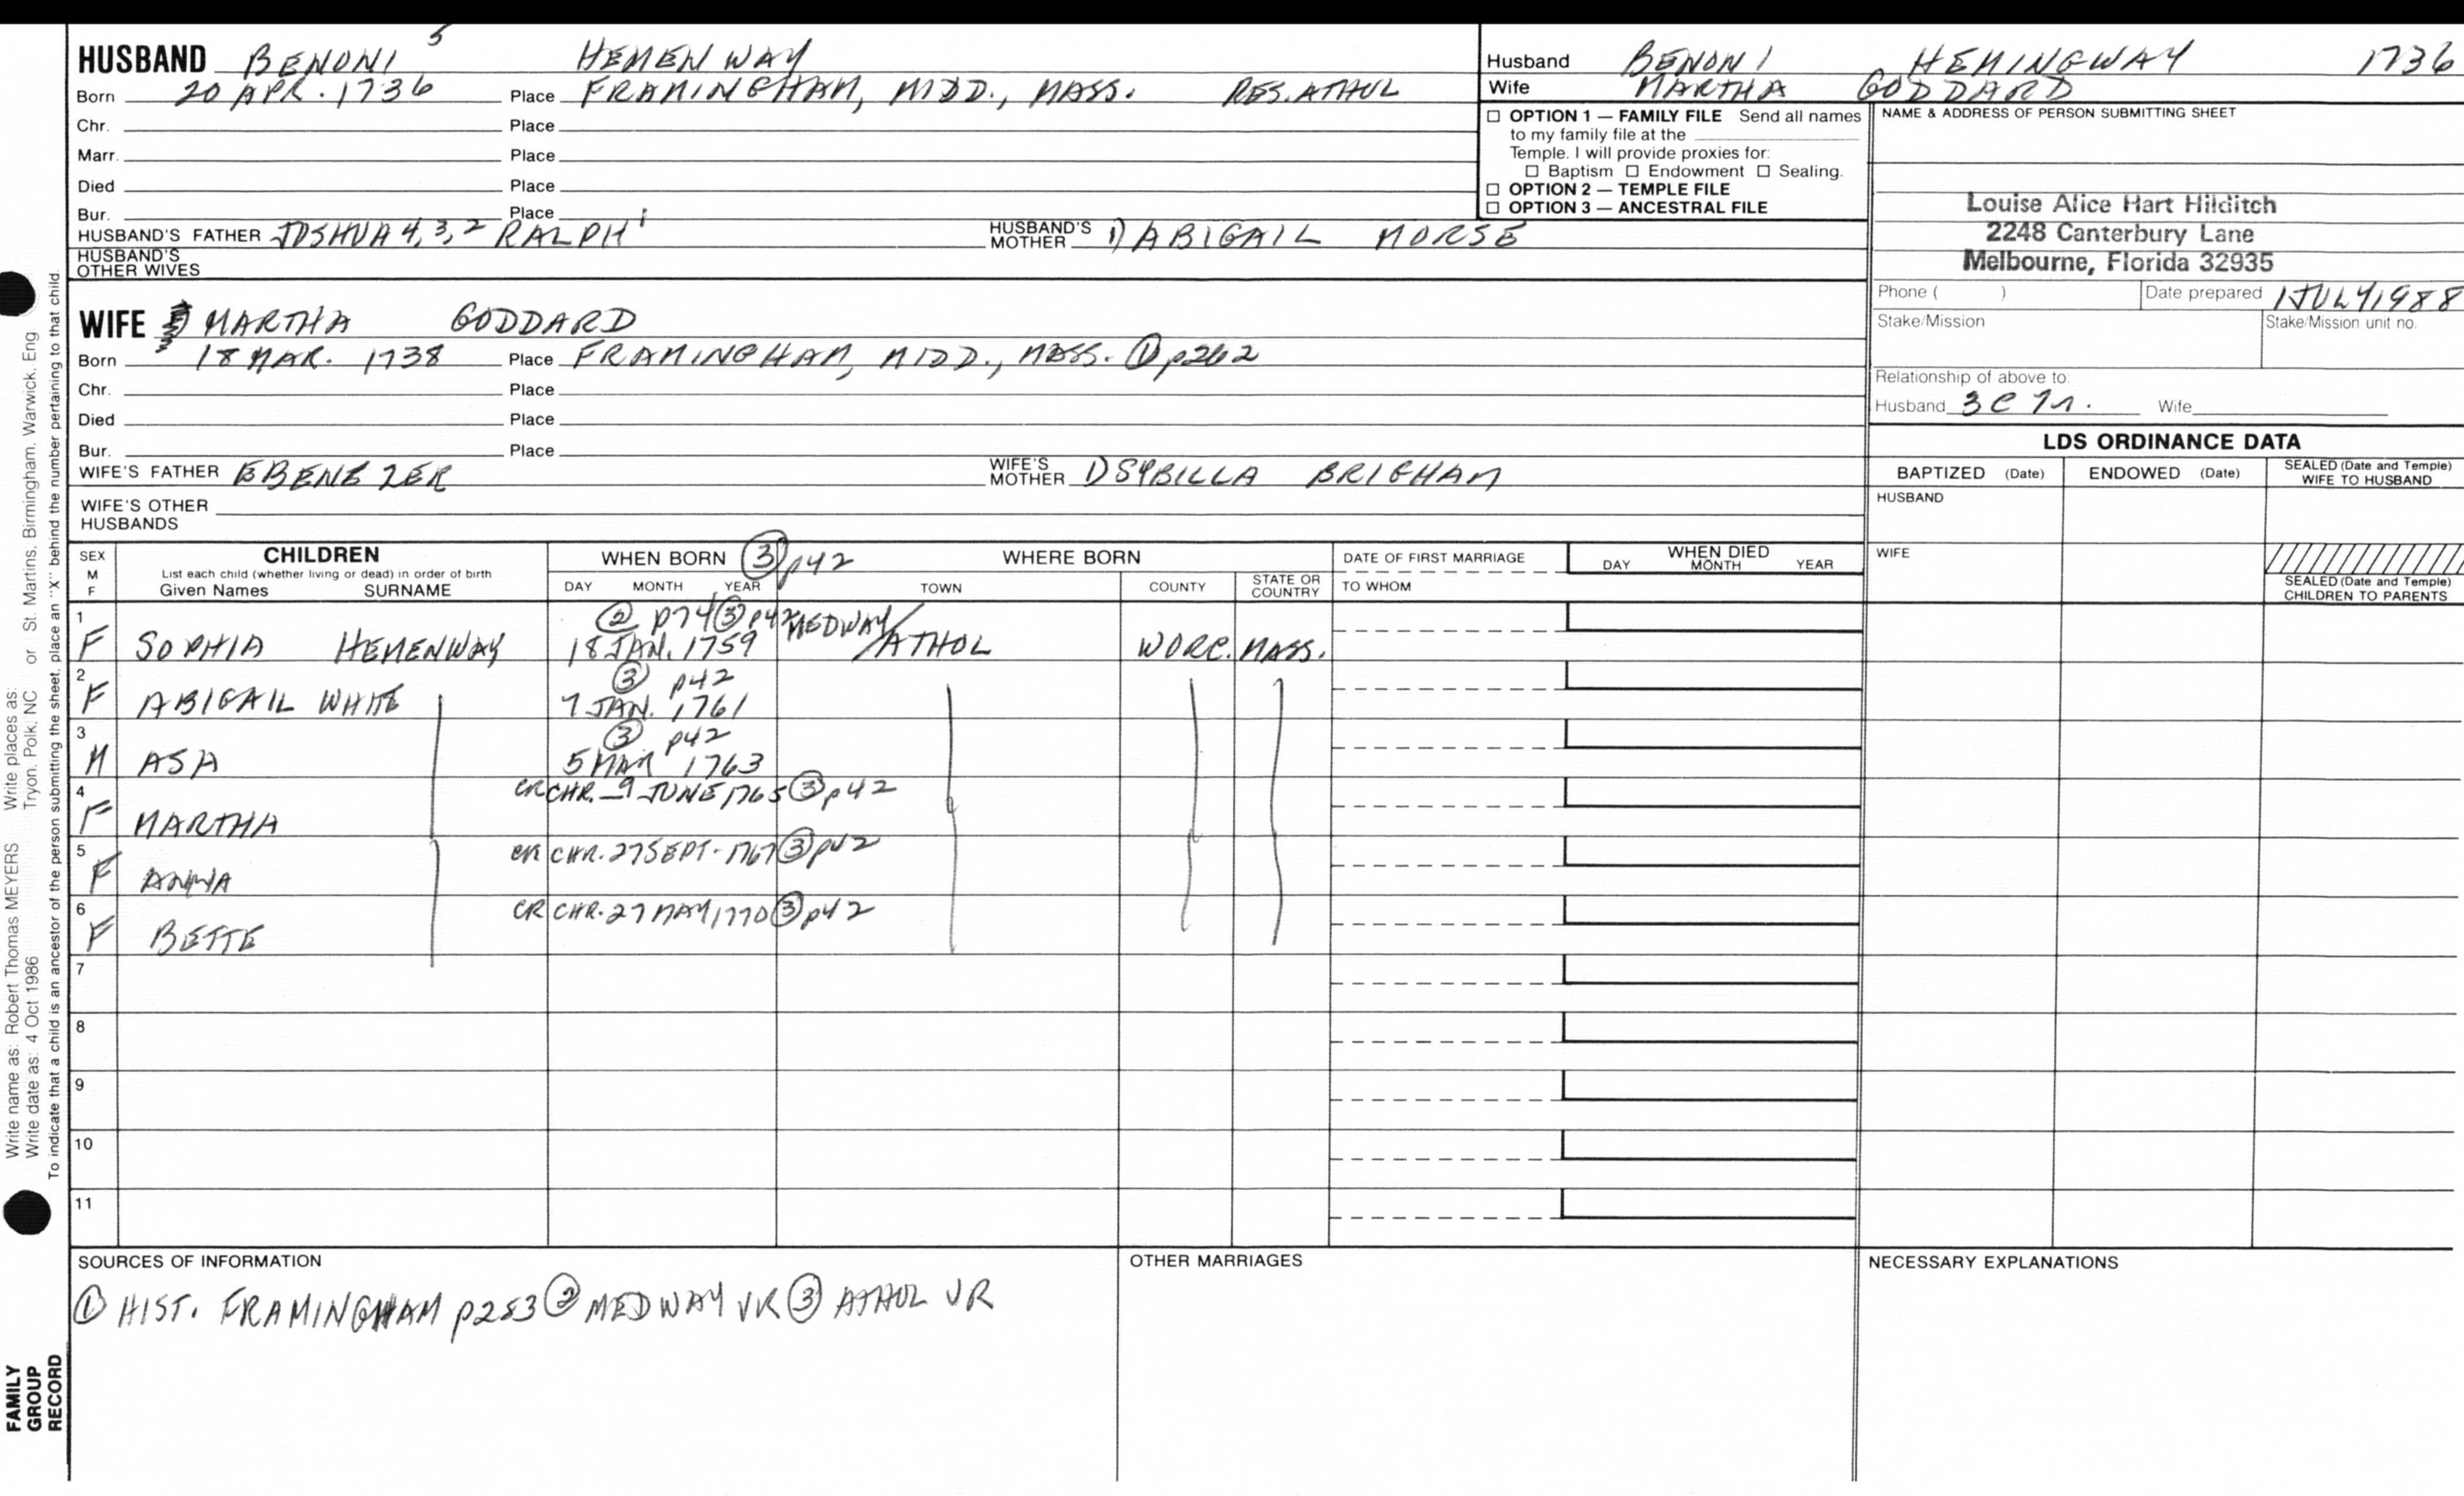 HUSBAND BENONI 5 HEMENWAY
Born 20 APR. 1736 Place FRAMINGHAM, MIDD., MASS. RES. ATHOL
Chr. Place
Marr. Place
Died Place
Bur. Place
HUSBAND'S FATHER JOSHUA 4, 3, 2 RALPH 1 HUSBAND'S MOTHER 1) ABIGAIL MORSE
HUSBAND'S OTHER WIVES
WIFE MARTHA GODDARD
Born 18 MAR. 1738 Place FRAMINGHAM, MIDD., MASS. ① p262
Chr. Place
Died Place
Bur. Place
WIFE'S FATHER EBENEZER WIFE'S MOTHER 1) SYBILLA BRIGHAM
WIFE'S OTHER HUSBANDS
Husband BENONI HEMINGWAY 1736
Wife MARTHA GODDARD
☐ OPTION 1 — FAMILY FILE Send all names
to my family file at the
Temple. I will provide proxies for:
☐ Baptism ☐ Endowment ☐ Sealing.
☐ OPTION 2 — TEMPLE FILE
☐ OPTION 3 — ANCESTRAL FILE
NAME & ADDRESS OF PERSON SUBMITTING SHEET
Louise Alice Hart Hilditch
2248 Canterbury Lane
Melbourne, Florida 32935
Phone ( ) Date prepared 1 JULY 1988
Stake/Mission Stake/Mission unit no.
Relationship of above to:
Husband 3C 7r. Wife
LDS ORDINANCE DATA
BAPTIZED (Date) ENDOWED (Date) SEALED (Date and Temple) WIFE TO HUSBAND
HUSBAND
WIFE
SEALED (Date and Temple) CHILDREN TO PARENTS
SEX M F
CHILDREN
List each child (whether living or dead) in order of birth
Given Names SURNAME
WHEN BORN ③ p42 WHERE BORN
DAY MONTH YEAR TOWN COUNTY STATE OR COUNTRY
DATE OF FIRST MARRIAGE
TO WHOM
WHEN DIED
DAY MONTH YEAR
1 ② p74 ③ p42 MEDWAY/
F SOPHIA HEMENWAY 18 JAN. 1759 /ATHOL WORC. MASS.
2 ③ p42
F ABIGAIL WHITE 7 JAN. 1761
3 ③ p42
M ASA 5 MAR 1763
4 CR CHR. 9 JUNE 1765 ③ p42
F MARTHA
5 CR CHR. 27 SEPT. 1767 ③ p42
F ANNA
6 CR CHR. 27 MAY 1770 ③ p42
F BETTE
7
8
9
10
11
SOURCES OF INFORMATION
① HIST. FRAMINGHAM p283 ② MEDWAY VR ③ ATHOL VR
OTHER MARRIAGES
NECESSARY EXPLANATIONS
Write name as: Robert Thomas MEYERS Write places as:
Write date as: 4 Oct 1986 Tryon, Polk, NC or St. Martins, Birmingham, Warwick, Eng
To indicate that a child is an ancestor of the person submitting the sheet, place an "X" behind the number pertaining to that child
FAMILY
GROUP
RECORD